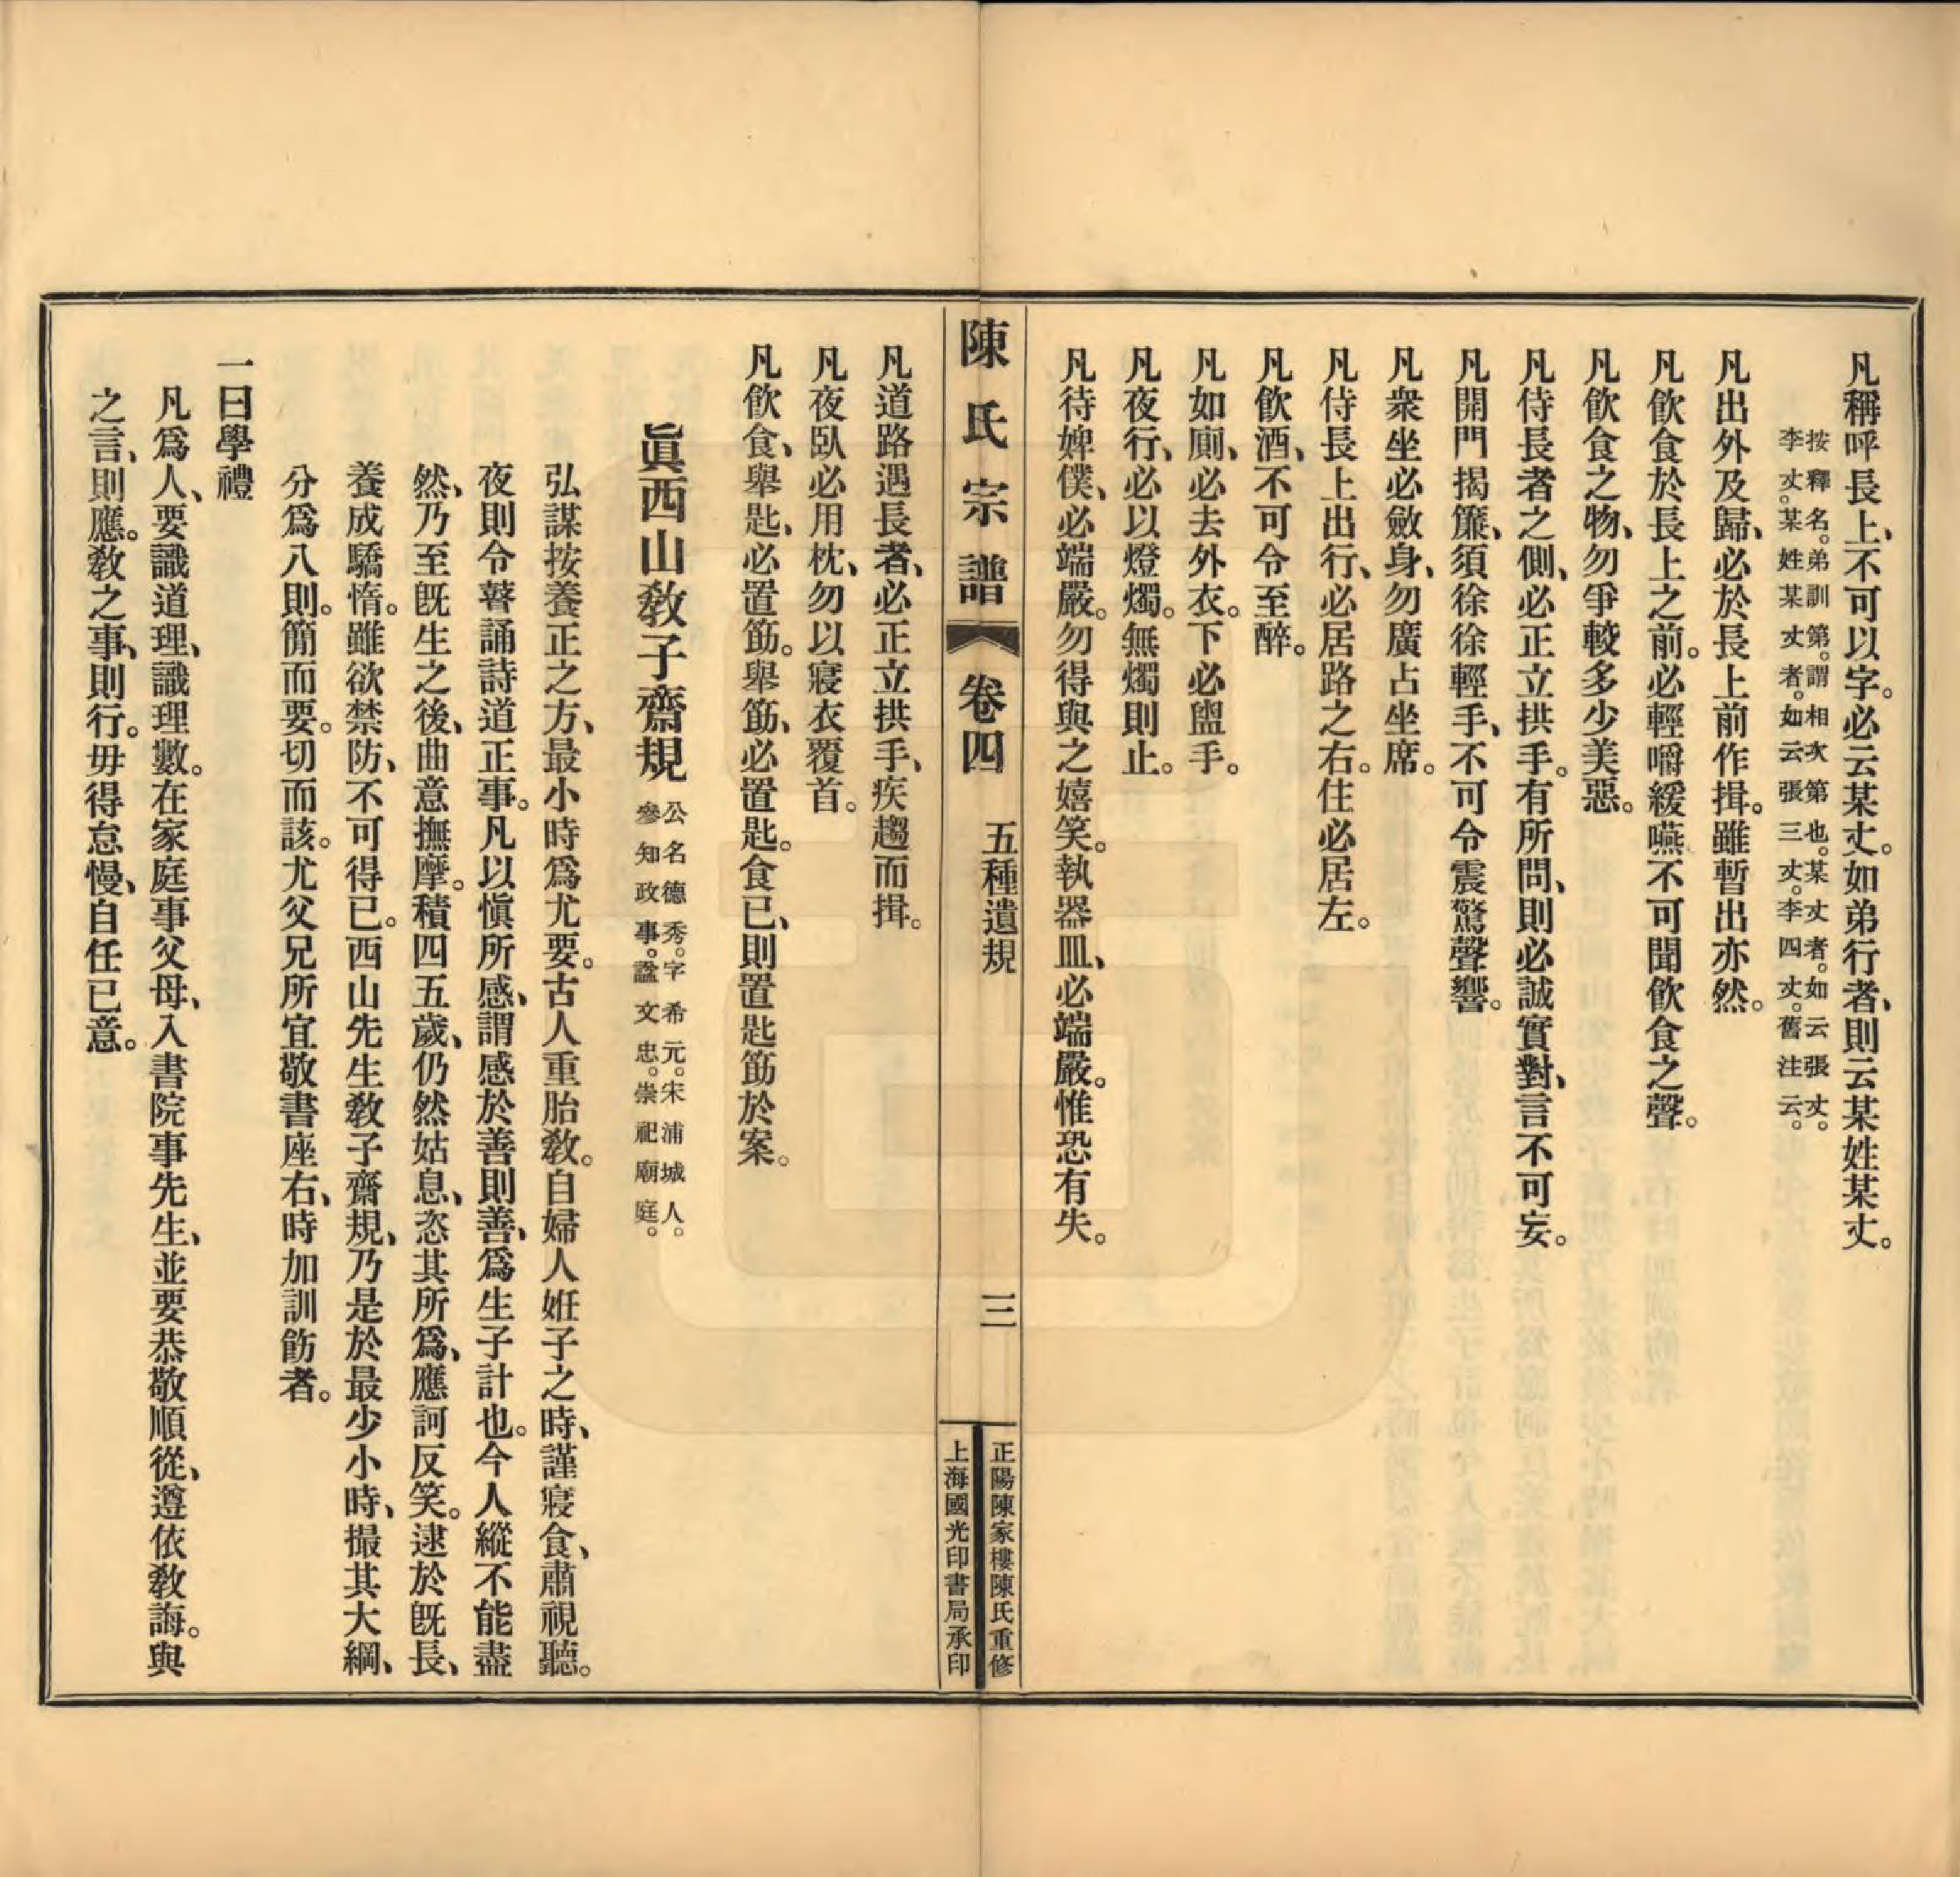 凡稱呼長上、不可以字。必云某丈。如弟行者、則云某姓某丈。
按釋名。弟訓第。謂相次第也。某丈者。如云張丈。
李丈。某姓某丈者。如云張三丈。李四丈。舊注云。
凡出外及歸、必於長上前作揖。雖暫出亦然。
凡飲食於長上之前。必輕嚼緩嚥、不可聞飲食之聲。
凡飲食之物、勿爭較多少美惡。
凡侍長者之側、必正立拱手。有所問、則必誠實對、言不可妄。
凡開門揭簾、須徐徐輕手、不可令震驚聲響。
凡衆坐必斂身、勿廣占坐席。
凡侍長上出行、必居路之右。住必居左。
凡飲酒、不可令至醉。
凡如廁、必去外衣。下必盥手。
凡夜行、必以燈燭。無燭則止。
凡待婢僕、必端嚴。勿得與之嬉笑。執器皿、必端嚴。惟恐有失。
陳氏宗譜 卷四 五種遺規 三
正陽陳家樓陳氏重修
上海國光印書局承印
凡道路遇長者、必正立拱手、疾趨而揖。
凡夜臥必用枕、勿以寢衣覆首。
凡飲食、舉匙、必置筯。舉筯、必置匙。食已、則置匙筯於案。
眞西山敎子齋規
公名德秀。字希元。宋浦城人。
參知政事。諡文忠。崇祀廟庭。
弘謀按養正之方、最小時爲尤要。古人重胎敎。自婦人姙子之時、謹寢食、肅視聽。
夜則令瞽誦詩道正事。凡以愼所感、謂感於善則善、爲生子計也。今人縱不能盡
然、乃至旣生之後、曲意撫摩。積四五歲、仍然姑息、恣其所爲、應訶反笑。逮於旣長、
養成驕惰。雖欲禁防、不可得已。西山先生敎子齋規、乃是於最少小時、撮其大綱、
分爲八則。簡而要。切而該。尤父兄所宜敬書座右、時加訓飭者。
一曰學禮
凡爲人、要識道理、識理數。在家庭事父母、入書院事先生、並要恭敬順從、遵依敎誨。與
之言、則應。敎之事、則行。毋得怠慢、自任已意。